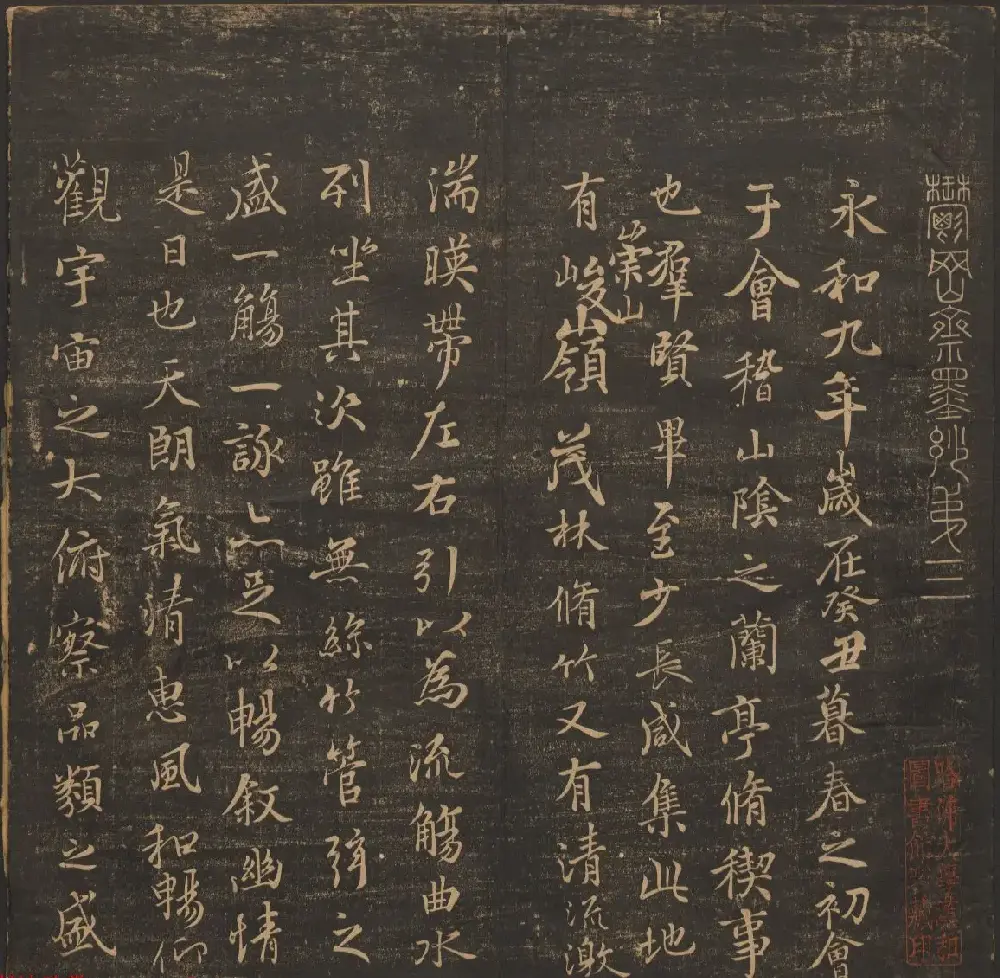 鬱岡齋墨妙弟二
永和九年歲在癸丑暮春之初會
于會稽山陰之蘭亭脩稧事
也羣賢畢至少長咸集此地
崇山
有峻嶺茂林脩竹又有清流激
湍暎帶左右引以為流觴曲水
列坐其次雖無絲竹管弦之
盛一觴一詠亦足以暢敘幽情
是日也天朗氣清惠風和暢仰
觀宇宙之大俯察品類之盛
哈佛大學漢和
圖書館珍藏印